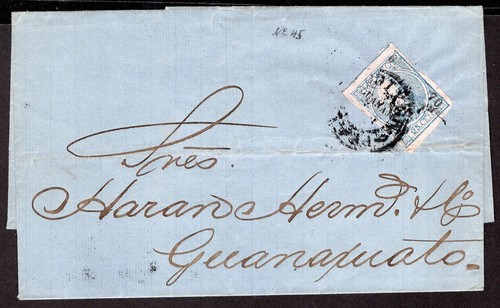 NE 45
10
Sres.
Haran Herms. & Co
Guanajuato.